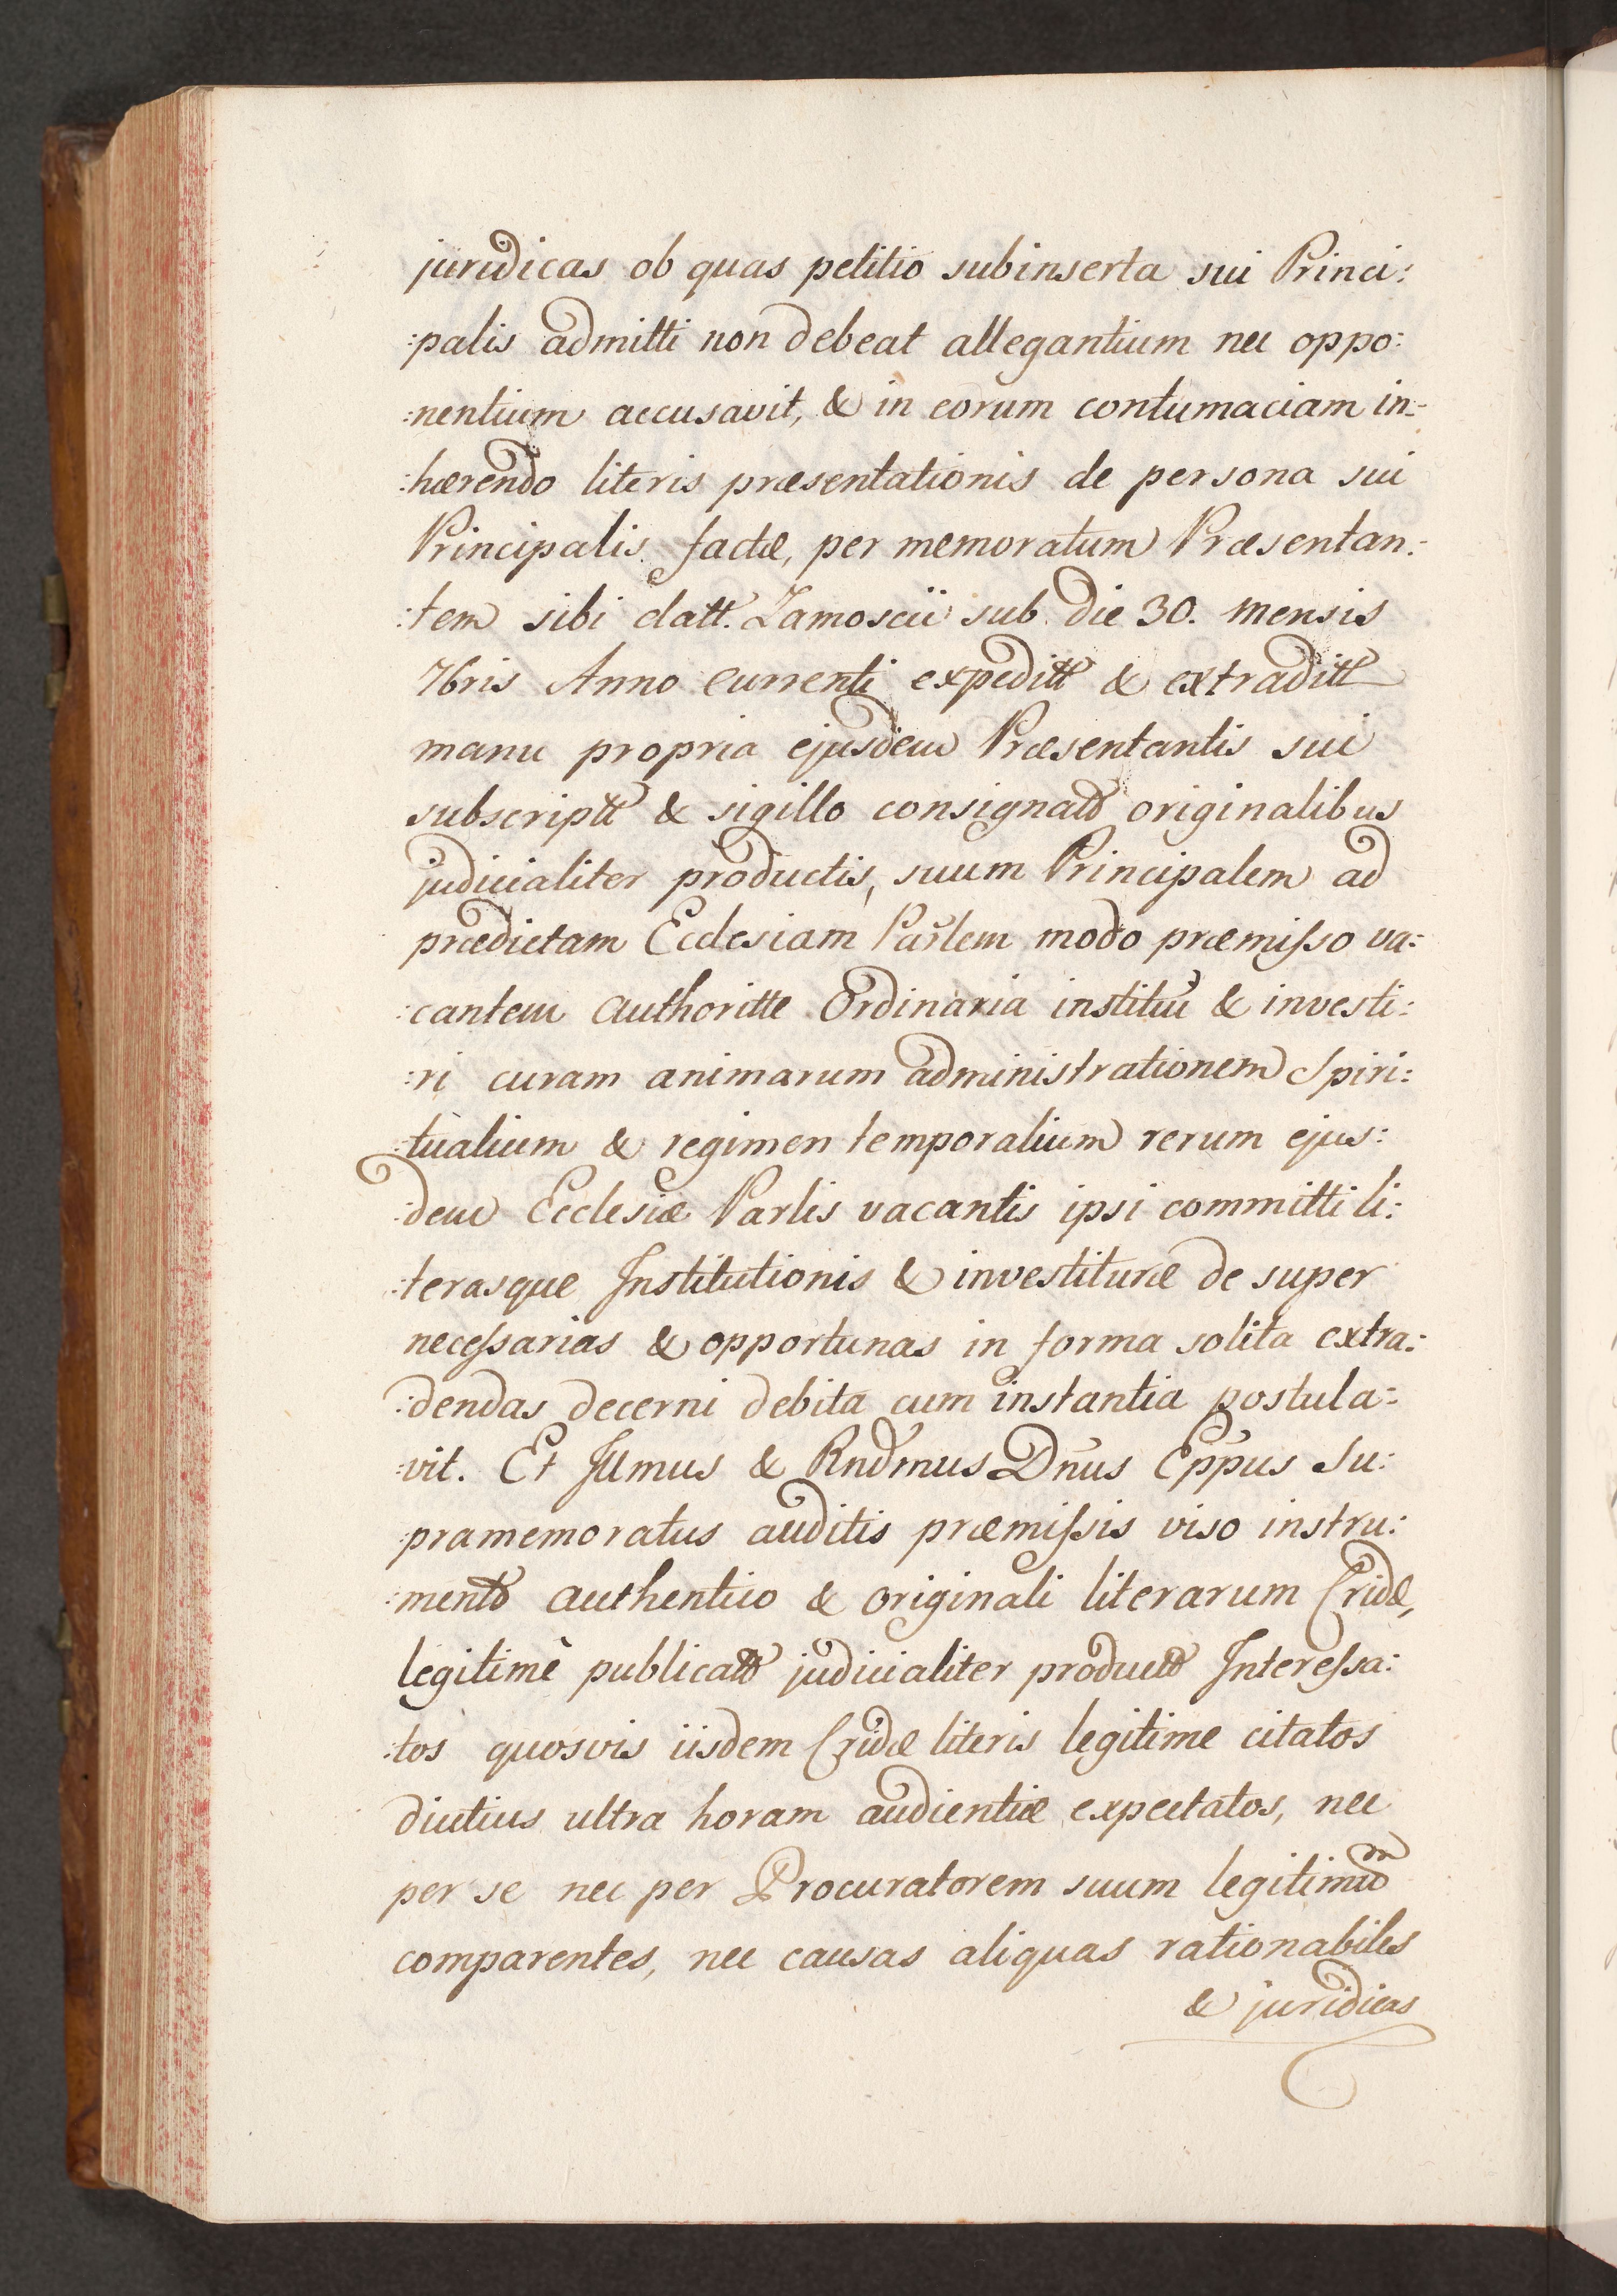 juridicas ob quas petitio subinserta sui Princi:
:palis admitti non debeat allegantium nec oppo:
:nentium accusavit, & in eorum contumaciam in:
:hærendo literis præsentationis de persona sui
Principalis factæ, per memoratum Præsentan:
:tem sibi datt. Zamoscii sub die 30. mensis
7bris Anno currenti expeditt & extraditt
manu propria ejusdem Præsentantis sui
subscriptt & sigillo consignatt originalibus
judicialiter productis, suum Principalem ad
prædictam Ecclesiam Parlem modo præmisso va:
:cantem authoritte Ordinaria institui & investi:
:ri curam animarum administrationem Spiri:
:tualium & regimen temporalium rerum ejus:
:dem Ecclesiæ Parlis vacantis ipsi committi li:
:terasque Institutionis & investituræ de super
necessarias & opportunas in forma solita extra:
:dendas decerni debita cum instantia postula:
:vit. Et Illmus & Rndmus Dnus Eppus Su:
:pramemoratus auditis præmissis viso instru:
:mento authentico & originali literarum Cridæ,
legitimè publicatt judicialiter productt Interessa:
:tos quosvis iisdem Cridæ literis legitime citatos
diutius ultra horam audientiæ expectatos, nec
per se nec per Procuratorem suum legitimum
comparentes, nec causas aliquas rationabiles
& juridicas